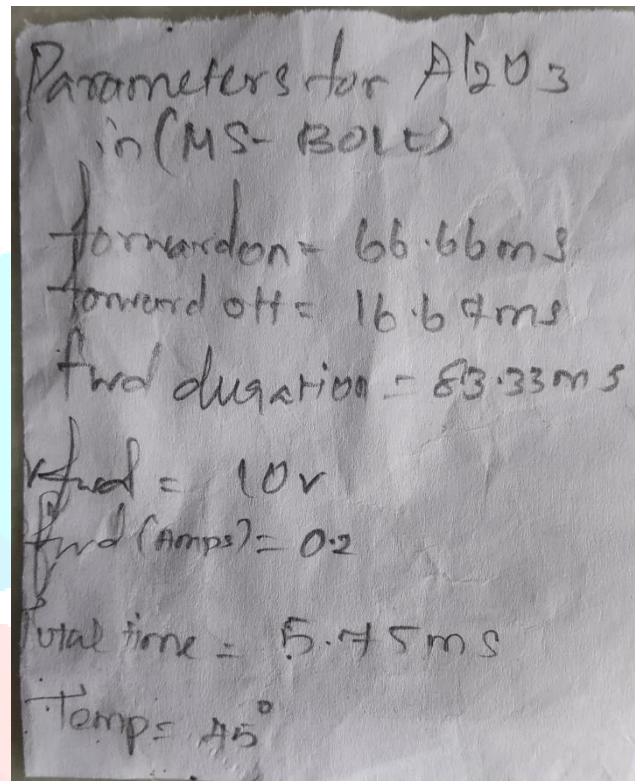 Parameters for Al2O3
in (MS-BOLt)
forwardon = 66.66ms
forward off = 16.67ms
fwd duration = 83.33ms
Vfwd = 10v
fwd (Amps) = 0.2
Total time = 5.45ms
Temp = 45°